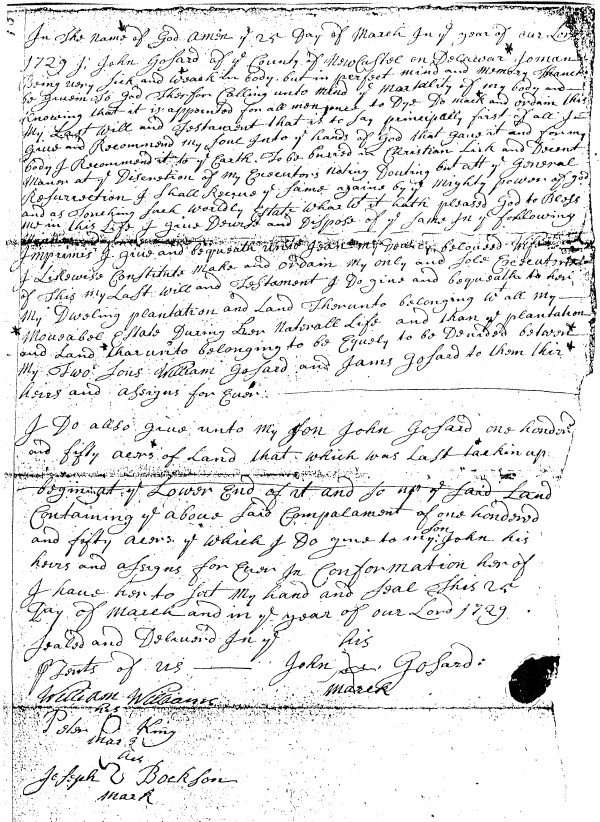 In The name of God amen ye 25 Day of March In ye year of our Lord
1729 I John Gosard of ye County of Newcastel on Delawar Joman
Being very Sick and weack in body but in perfect mind and Memory Thancks
be Gaven to God Therfor Calling unto mind ye mortality of my body and
Knowing that it is appointed for all men once to Dye Do mack and ordain this
My Last Will and Testament that is to Say principally first of all I
Giue and Recommend my Soul Into ye hands of God that Gaue it and for my
body I Recommend it to ye Earth To be buried in Christian Lick and Decent
Maner at ye Discretion of my Executors Noting Douting but att ye General
Resurrection I Shall Receue ye Same againe by ye Mighty power of God
and as Touching Such Worldly Estate whar wt it hath pleased God to Bless
me in this Life I Gaue Deuise and Dispose of ye Same In ye following
Imprimis I giue and bequeath unto Jean my Dearly beloued Wife
I Likewise Constitute Make and ordain my only and Sole Executrix
of This my Last Will and Testament I Do giue and bequeathe to her
My Dweling plantation and Land Therunto belonging wt all my
Moueabel Estate During her Naterall Life and than ye plantation
and Land thar unto belonging to be Equely to be Deuided betwen
My Two Sons William Gosard and Jams Gosard to them thir
heirs and assigns for Euer
I Do allso giue unto my Son John Gosard one honderd
and fifty acers of Land that which was Last tackin up
begining at ye Lower End of it and So up ye Said Land
Containing ye above Said Compalament of one hondered
and fifty acers ye which I Do giue to my Son John his
heirs and assigns for Euer In Conformation her of
I have her to Sat my hand and Seal This 25
Day of March and in ye year of our Lord 1729
Sealed and Delauerd In ye his
psents of us John Gosard
William Williams marck
his
Peter King
marck
his
Joseph Bockson
mark